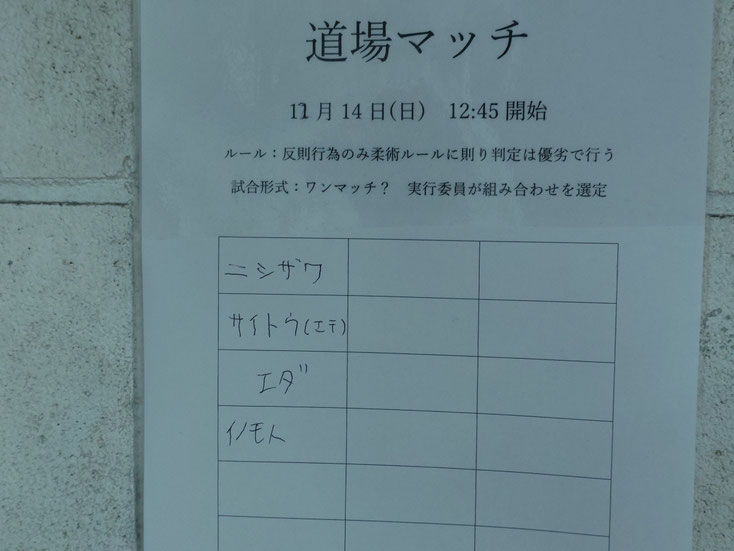 道場マッチ
11月14日(日) 12:45開始
ルール：反則行為のみ柔術ルールに則り判定は優劣で行う
試合形式：ワンマッチ？ 実行委員が組み合わせを選定
ニシザワ
サイトウ(エテ)
エダ
イノモト